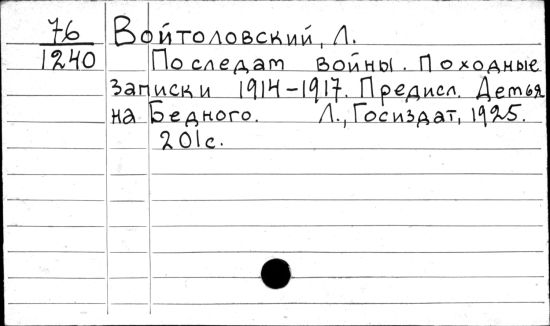 76 Войтоловский, Л.
1240 По следам войны. Походные
записки 1914-1917. Предисл. Демья
на Бедного. Л., Госиздат, 1925.
201с.